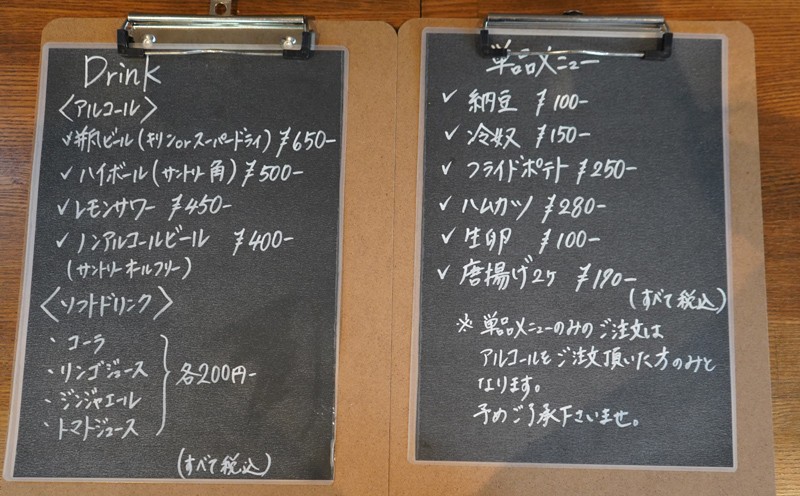 Drink
〈アルコール〉
✓ 瓶ビール(キリンorスーパードライ) ¥650-
✓ ハイボール(サントリー角) ¥500-
✓ レモンサワー ¥450-
✓ ノンアルコールビール ¥400-
(サントリーオールフリー)
〈ソフトドリンク〉
・コーラ
・リンゴジュース
・ジンジャエール
・トマトジュース
各200円-
(すべて税込)
単品メニュー
✓ 納豆 ¥100-
✓ 冷奴 ¥150-
✓ フライドポテト ¥250-
✓ ハムカツ ¥280-
✓ 生卵 ¥100-
✓ 唐揚げ2ケ ¥190-
(すべて税込)
※ 単品メニューのみのご注文は
アルコールをご注文頂いた方のみと
なります。
予めご了承下さいませ。